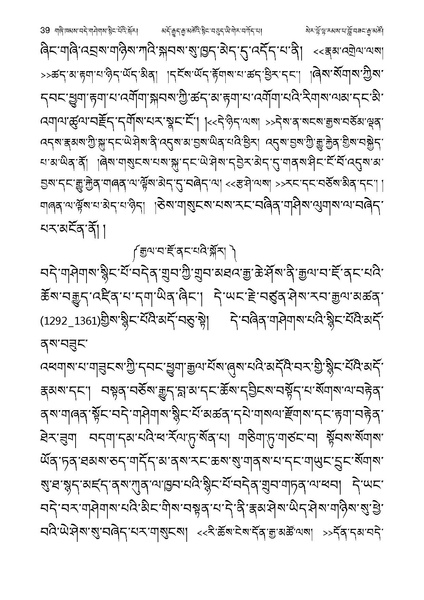 39 གཞི་ཁམས་བདེ་གཤེགས་སྙིང་པོའི་སྐོར། མདོ་རྒྱུད་རྒྱ་མཚོའི་སྙིང་བཅུད་ཡི་གེར་བཀོད་པ། སེར་ཕྱོ་ལྷ་རམས་པ་བློ་བཟང་རྒྱ་མཚོ།
ཞིང་གཞི་འབྲས་གཉིས་ཀའི་སྐབས་སུ་ཁྱད་མེད་དུ་འདོད་པ་ནི། <<རྣམ་འགྲེལ་ལས།
>>ཚད་མ་རྟག་པ་ཉིད་ཡོད་མིན། །དངོས་ཡོད་རྟོགས་པ་ཚད་ཕྱིར་དང་། །ཞེས་སོགས་ཀྱིས་
དབང་ཕྱུག་རྟག་པ་འགོག་སྐབས་ཀྱི་ཚད་མ་རྟག་པ་འགོག་པའི་རིགས་ལམ་དང་མི་
འགལ་ཚུལ་བརྗོད་དགོས་པར་སྣང་ངོ་། །<<དེ་ཉིད་ལས། >>དེས་ན་སངས་རྒྱས་བཅོམ་ལྡན་
འདས་རྣམས་ཀྱི་སྐུ་དང་ཡེ་ཤེས་ནི་འདུས་མ་བྱས་ཡིན་པའི་ཕྱིར། འདུས་བྱས་ཀྱི་རྒྱུ་རྐྱེན་གྱིས་བསྐྱེད་
པ་མ་ཡིན་ནོ། །ཞེས་གསུངས་པས་སྐུ་དང་ཡེ་ཤེས་དབྱེར་མེད་དུ་གནས་ཤིང་ངོ་བོ་འདུས་མ་
བྱས་དང་རྒྱུ་རྐྱེན་གཞན་ལ་ལྟོས་མེད་དུ་བཞེད་ལ། <<རྩ་ཤེ་ལས། >>རང་དང་བཅོས་མིན་དང་། །
གཞན་ལ་ལྟོས་པ་མེད་པ་ཉིད། །ཅེས་གསུངས་པས་རང་བཞིན་གཤིས་ལུགས་ལ་བཞེད་
པར་མངོན་ནོ། །
༼རྒྱལ་བ་ཇོ་ནང་པའི་སྐོར། ༽
བདེ་གཤེགས་སྙིང་པོ་བདེན་གྲུབ་ཀྱི་གྲུབ་མཐའ་རྒྱ་ཆེ་ཤོས་ནི་རྒྱལ་བ་ཇོ་ནང་པའི་
ཆོས་བརྒྱུད་འཛིན་པ་དག་ཡིན་ཞིང་། དེ་ཡང་རྗེ་བཙུན་ཤེས་རབ་རྒྱལ་མཚན་
(1292_1361)གྱིས་སྙིང་པོའི་མདོ་བཅུ་སྟེ། དེ་བཞིན་གཤེགས་པའི་སྙིང་པོའི་མདོ་
ནས་བཟུང་
འཕགས་པ་གཟུངས་ཀྱི་དབང་ཕྱུག་རྒྱལ་པོས་ཞུས་པའི་མདོའི་བར་གྱི་སྙིང་པོའི་མདོ་
རྣམས་དང་། བསྟན་བཅོས་རྒྱུད་བླ་མ་དང་ཆོས་དབྱིངས་བསྟོད་པ་སོགས་ལ་བརྟེན་
ནས་གཞན་སྟོང་བདེ་གཤེགས་སྙིང་པོ་མཚན་དཔེ་གསལ་རྫོགས་དང་རྟག་བརྟན་
ཐེར་ཟུག བདག་དམ་པའི་ཕ་རོལ་ཏུ་སོན་པ། གཅིག་ཏུ་གཙང་བ། སྟོབས་སོགས་
ཡོན་ཏན་ཐམས་ཅད་གདོད་མ་ནས་རང་ཆས་སུ་གནས་པ་དང་གཡུང་དྲུང་སོགས་
སུ་ཐ་སྙད་མཛད་ནས་ཀུན་ལ་ཁྱབ་པའི་སྙིང་པོ་བདེན་གྲུབ་གཏན་ལ་ཕབ། དེ་ཡང་
བདེ་བར་གཤེགས་པའི་མིང་གིས་བསྟན་པ་དེ་ནི་རྣམ་ཤེས་ཡིད་ཤེས་གཉིས་སུ་ཕྱེ་
བའི་ཡེ་ཤེས་སུ་བཞེད་པར་གསུངས། <<རི་ཆོས་ངེས་དོན་རྒྱ་མཚོ་ལས། >>དོན་དམ་བདེ་